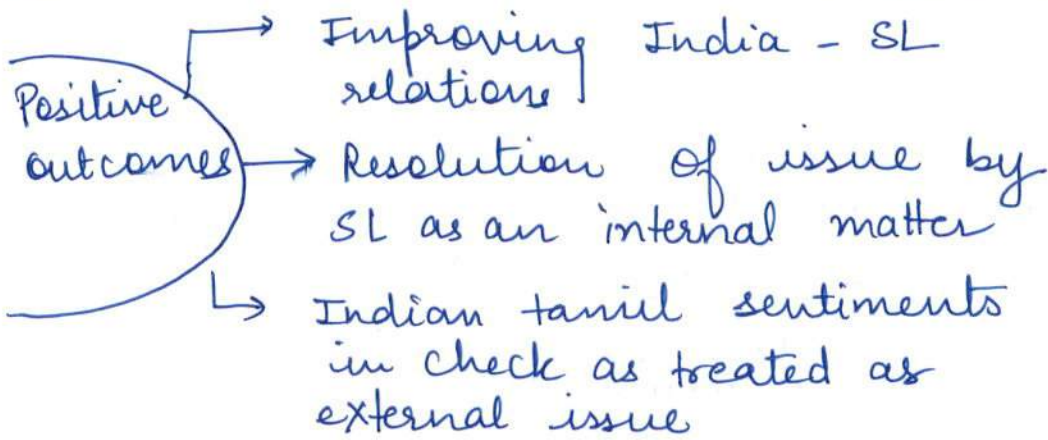 Positive
outcomes
Improving India - SL
relations
Resolution of issue by
SL as an internal matter
Indian tamil sentiments
in check as treated as
external issue